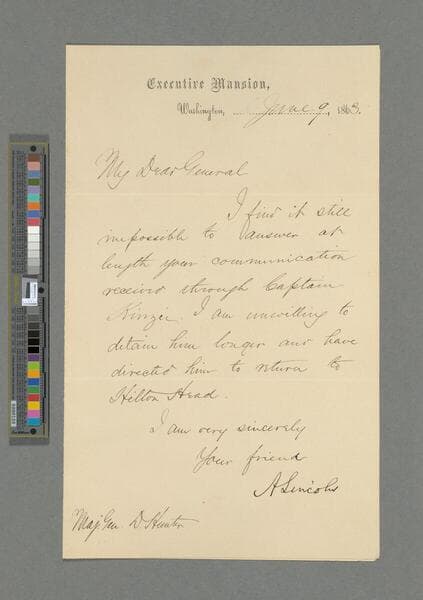 Executive Mansion,
Washington, June 9, 1863.
My Dear General
I find it still
impossible to answer at
length your communication
received through Captain
Kinzei. I am unwilling to
detain him longer and have
directed him to return to
Hilton Head.
I am very sincerely
Your friend
A Lincoln
Maj. Gen D Hunter